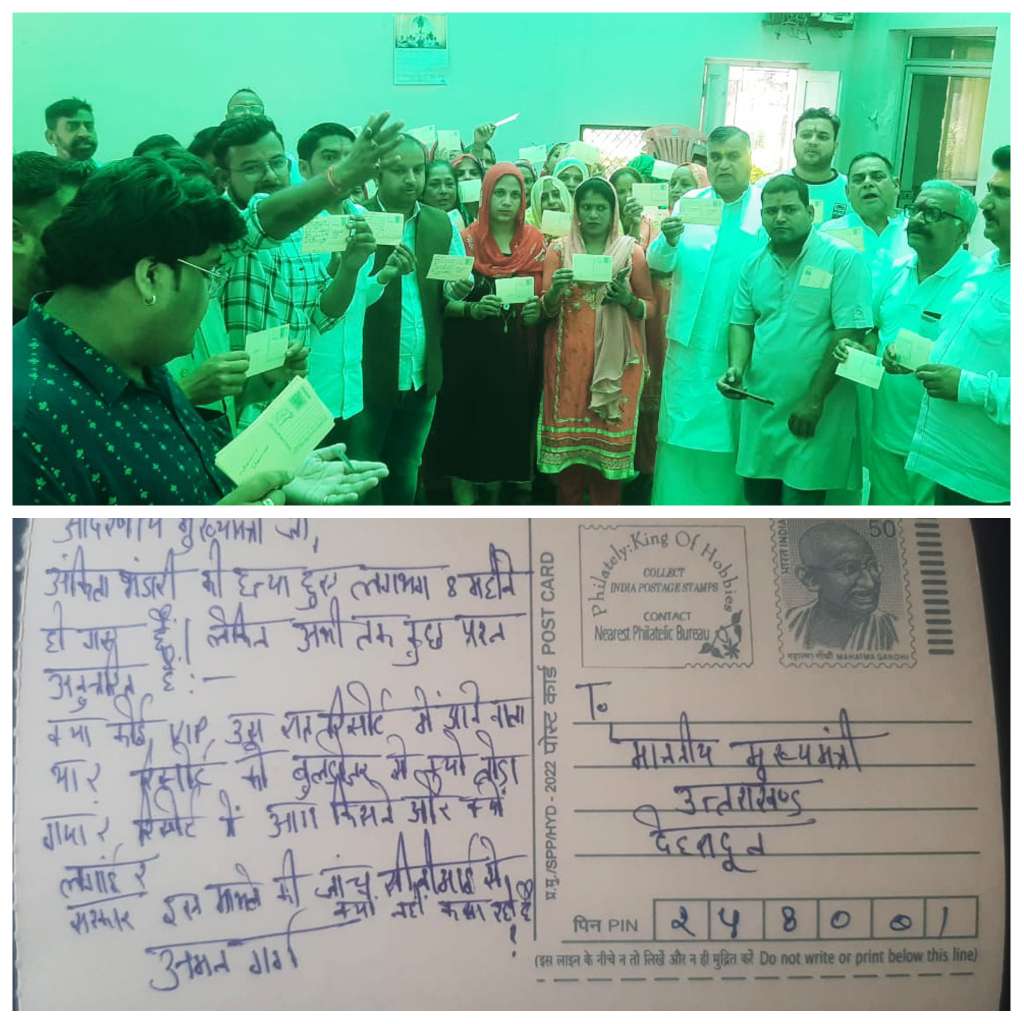 आदरणीय मुख्यमंत्री जी,
अंकिता भंडारी की हत्या हुए लगभग 8 महीने
हो गए हैं। लेकिन अभी तक कुछ प्रश्न
अनुत्तरित हैं:-
क्या कोई VIP उस रात रिसोर्ट में आने वाला
था? रिसोर्ट को बुलडोजर से क्यों तोड़ा
गया? रिसोर्ट में आग किसने और क्यों
लगाई?
सरकार इस मामले की जांच सीबीआई से
क्यों नहीं करा रही है?
गर्ग
प्र.मु./SPP/HYD - 2022 पोस्ट कार्ड POST CARD
Philately: King Of Hobbies
COLLECT
INDIA POSTAGE STAMPS
CONTACT
Nearest Philatelic Bureau
भारत INDIA
50
महात्मा गाँधी MAHATMA GANDHI
To,
माननीय मुख्यमंत्री
उत्तराखण्ड
देहरादून
पिन PIN २४८००१
(इस लाइन के नीचे न तो लिखें और न ही मुद्रित करें Do not write or print below this line)